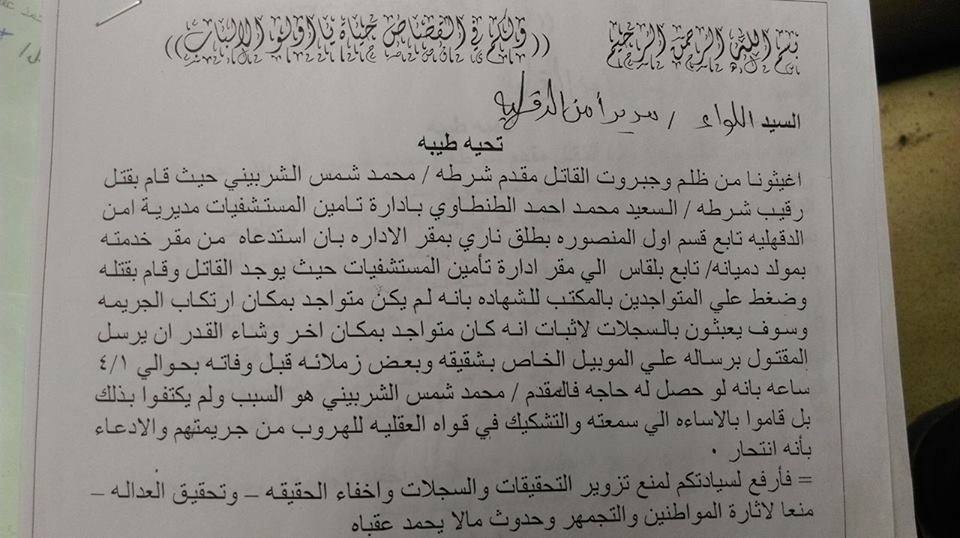 بسم الله الرحمن الرحيم ((ولكم في القصاص حياة يا أولو الالباب))
السيد اللواء / مدير أمن الدقهلية
تحيه طيبه
اغيثونا من ظلم وجبروت القاتل مقدم شرطه / محمد شمس الشربيني حيث قام بقتل
رقيب شرطه / السعيد محمد احمد الطنطاوي بادارة تامين المستشفيات مديرية امن
الدقهليه تابع قسم اول المنصوره بطلق ناري بمقر الاداره بان استدعاه من مقر خدمته
بمولد دميانه/ تابع بلقاس الي مقر ادارة تأمين المستشفيات حيث يوجد القاتل وقام بقتله
وضغط علي المتواجدين بالمكتب للشهاده بانه لم يكن متواجد بمكان ارتكاب الجريمه
وسوف يعبثون بالسجلات لاثبات انه كان متواجد بمكان اخر وشاء القدر ان يرسل
المقتول برساله علي الموبيل الخاص بشقيقه وبعض زملائه قبل وفاته بحوالي ٤/١
ساعه بانه لو حصل له حاجه فالمقدم / محمد شمس الشربيني هو السبب ولم يكتفوا بذلك
بل قاموا بالاساءه الي سمعته والتشكيك في قواه العقليه للهروب من جريمتهم والادعاء
بأنه انتحار .
= فأرفع لسيادتكم لمنع تزوير التحقيقات والسجلات واخفاء الحقيقه – وتحقيق العداله –
منعا لاثارة المواطنين والتجمهر وحدوث مالا يحمد عقباه